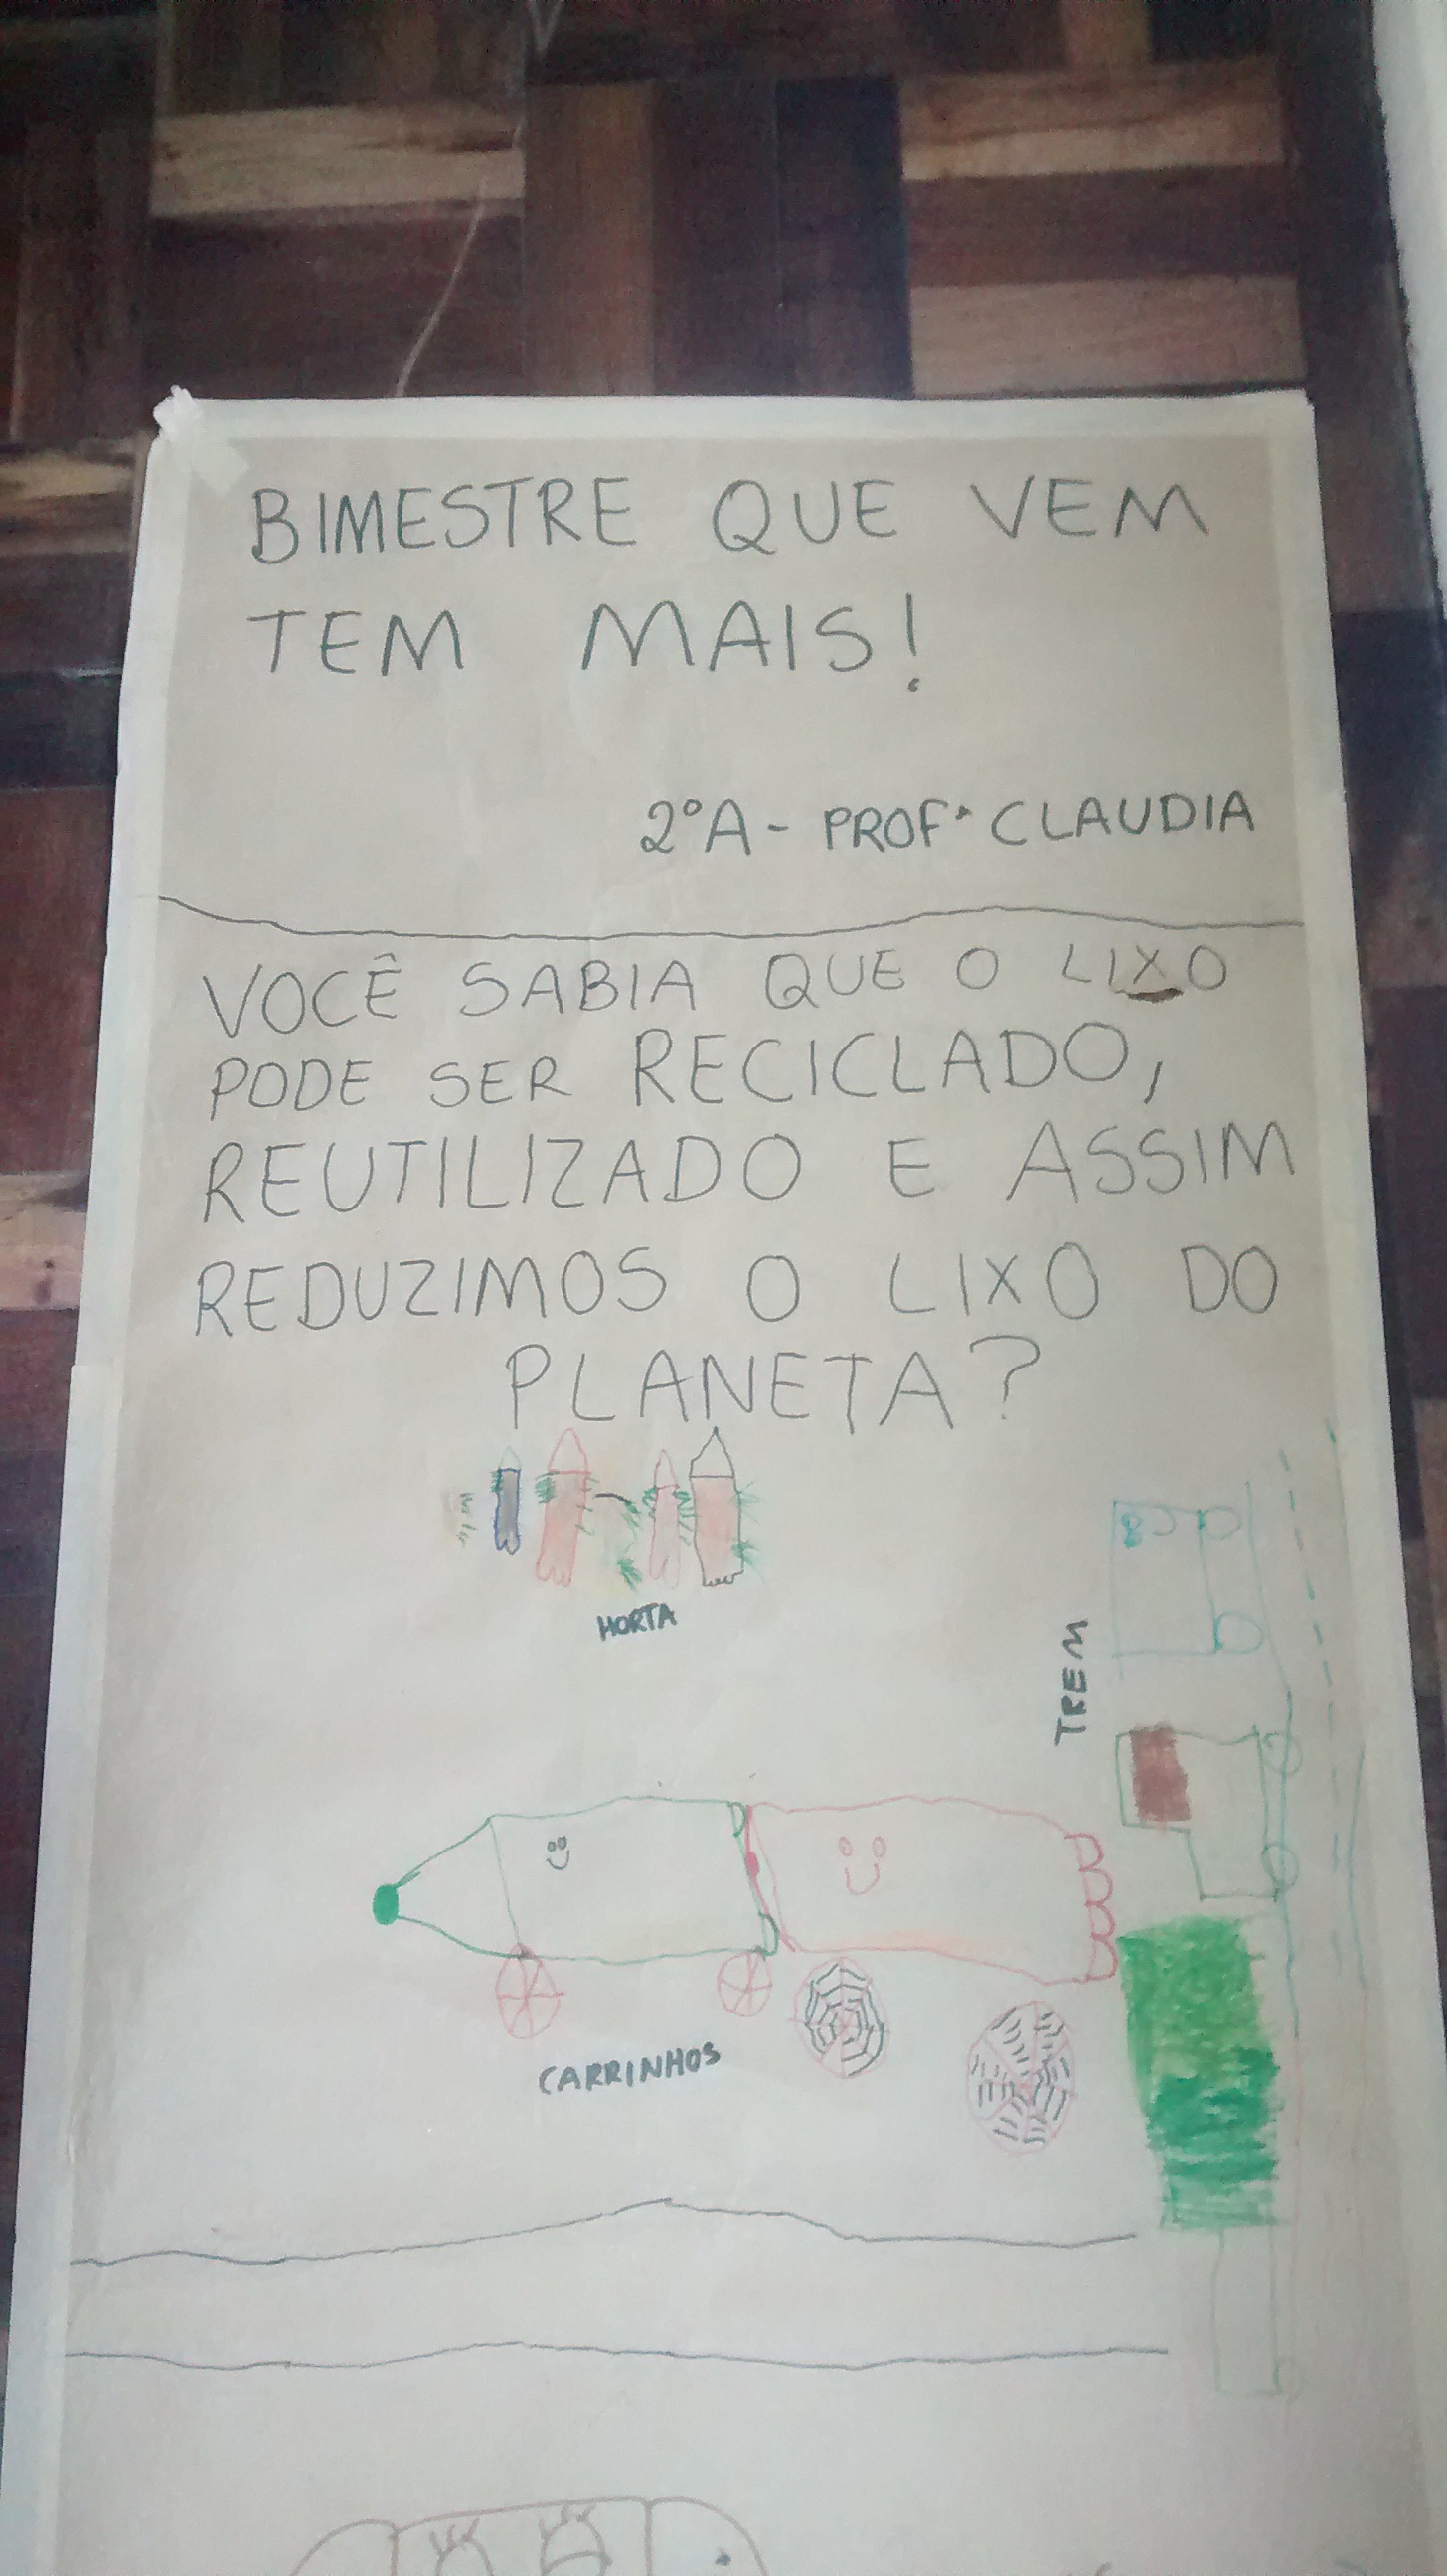 BIMESTRE QUE VEM
TEM MAIS!
2ºA - PROFª CLAUDIA
VOCÊ SABIA QUE O LIXO
PODE SER RECICLADO,
REUTILIZADO E ASSIM
REDUZIMOS O LIXO DO
PLANETA?
HORTA
TREM
CARRINHOS